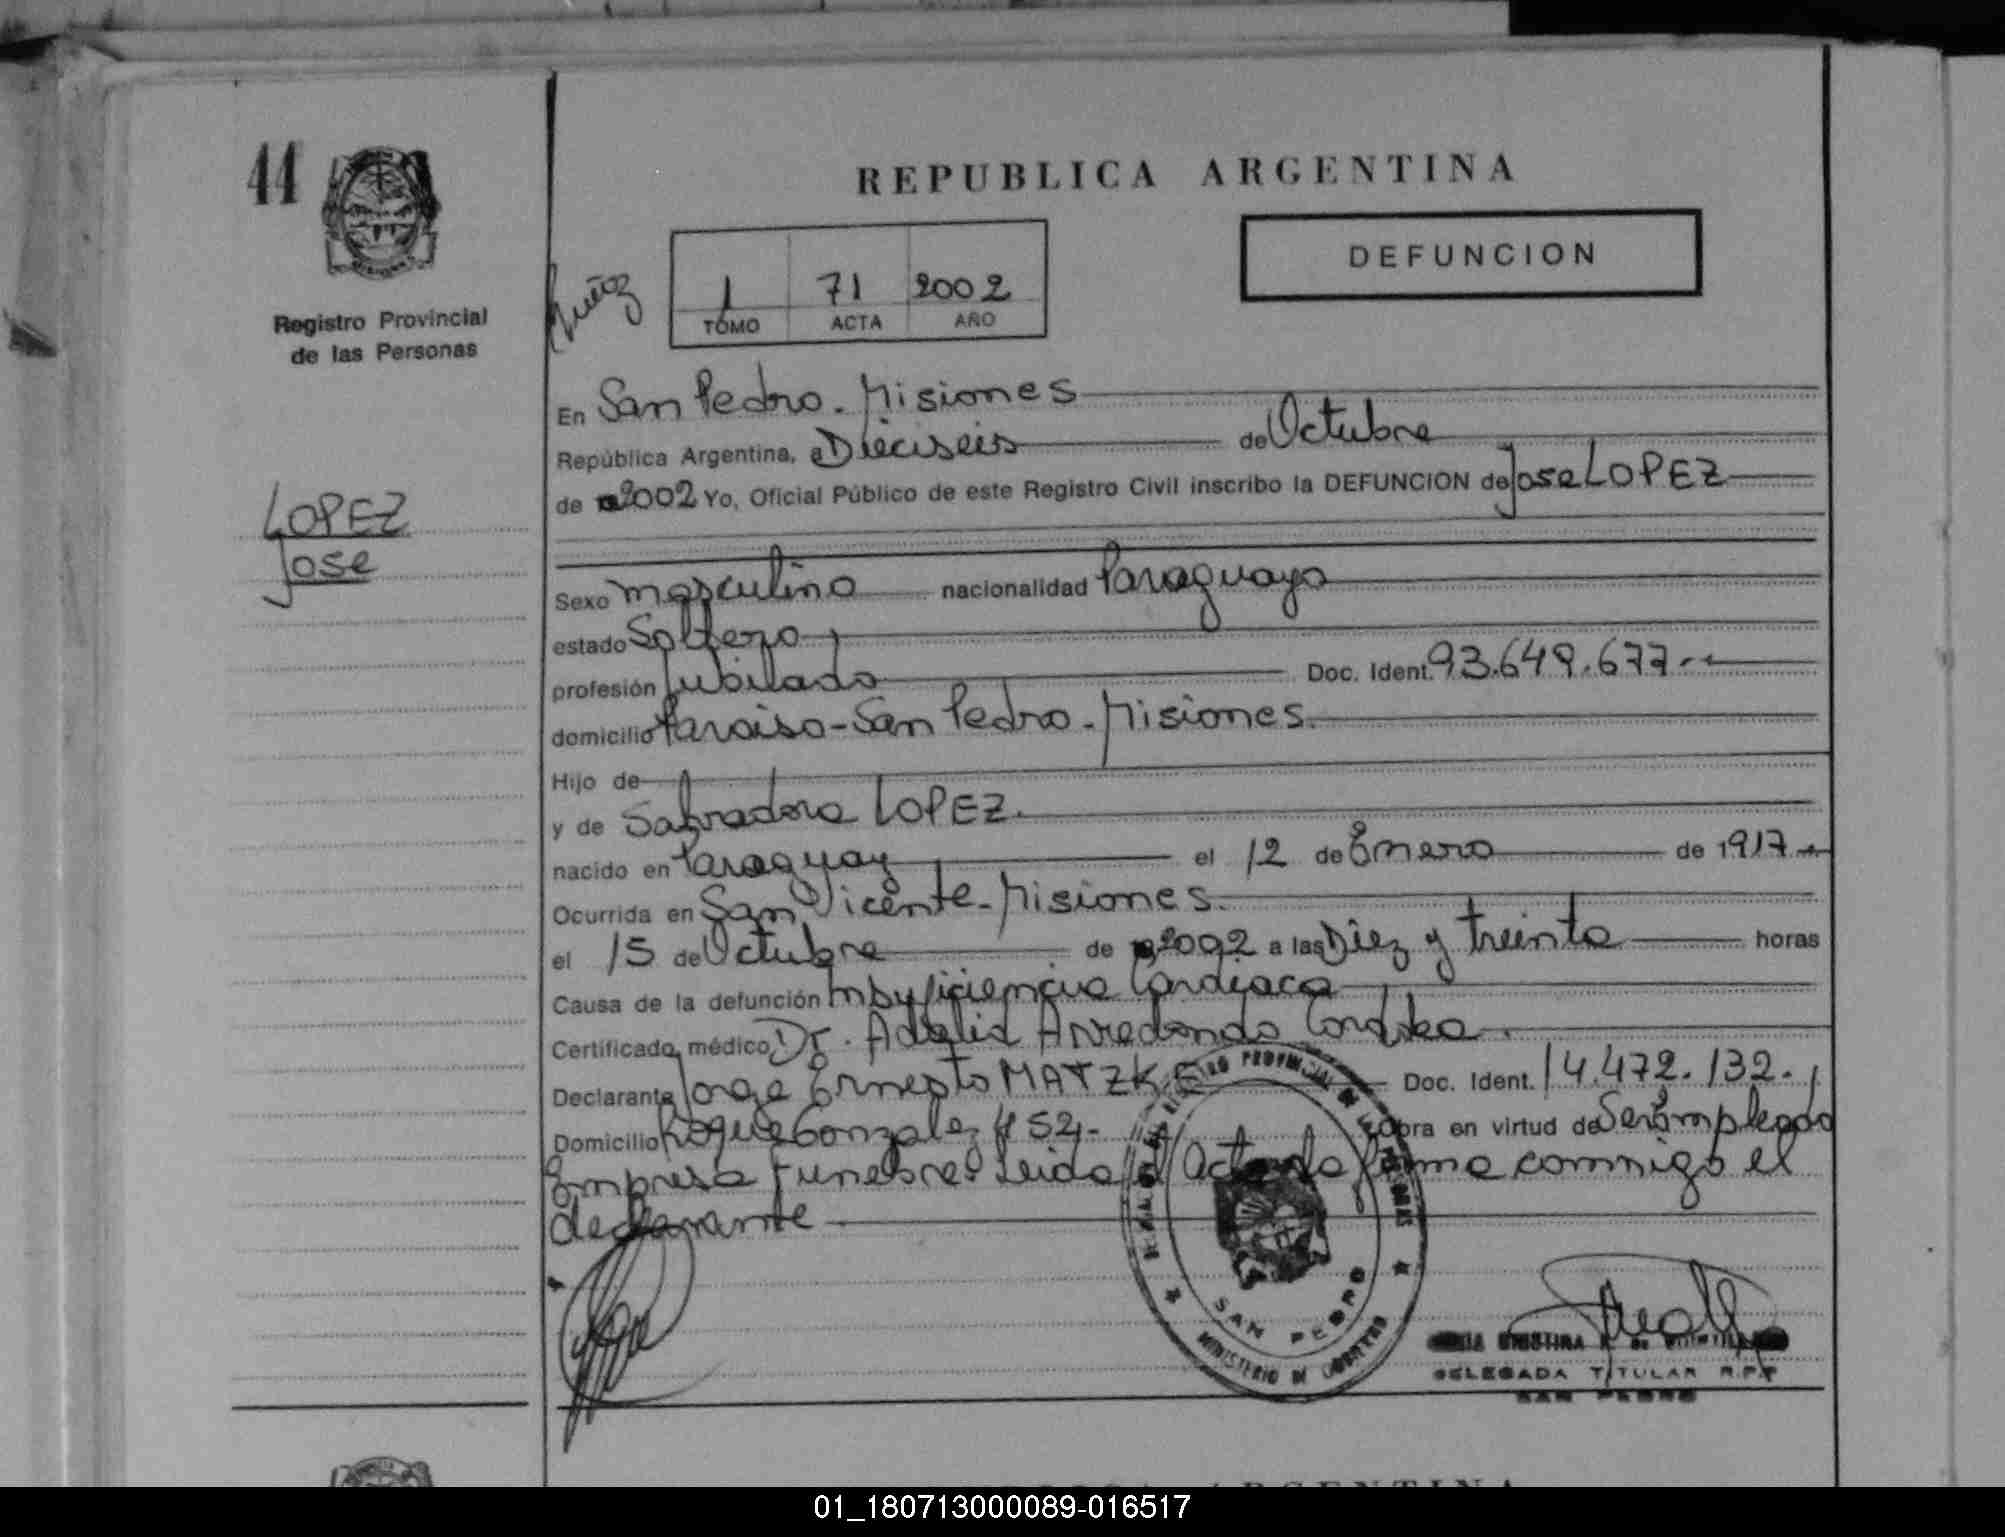 44
REPUBLICA ARGENTINA
DEFUNCION
Registro Provincial
de las Personas
1 71 2002
TOMO ACTA AÑO
LOPEZ
Jose
En San Pedro. Misiones
República Argentina, a Dieciseis de Octubre
de 2002 Yo, Oficial Público de este Registro Civil inscribo la DEFUNCION de Jose LOPEZ
Sexo masculino nacionalidad Paraguaya
estado Soltero
profesión Jubilado Doc. Ident. 93.649.677.-
domicilio Paraiso-San Pedro. Misiones.
Hijo de
y de Salvadora LOPEZ.
nacido en Paraguay el 12 de Enero de 1917
Ocurrida en San Vicente-Misiones.
el 15 de Octubre de 2002 a las Diez y treinta horas
Causa de la defunción Insuficiencia Cardiaca
Certificado médico Dr. Arredondo
Declarante Jorge Ernesto MATZKE Doc. Ident. 14.472.132.
Domicilio Roque Gonzalez 452.- Obra en virtud de Ser Empleado
Empresa funebre. Leida el Acta la firma conmigo el
declarante
REGISTRO PROVINCIAL DE LAS PERSONAS
SAN PEDRO
MINISTERIO DE GOBIERNO
CRISTINA de
DELEGADA TITULAR R.P.P
SAN PEDRO
ARGENTINA
01_180713000089-016517